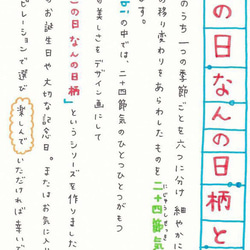 の日なんの日柄と
のうち 一つの季節ごとを六つに分け 細やかに
の移り変わりをあらわしたものを 二十四節気
す。
の中では、二十四節気のひとつひとつがもつ
の美しさをデザイン画にして
の日なんの日柄」というシリーズを作りました
のお誕生日や大切な記念日。またはお気に入り
ピレーションで選び 楽しんで いただければ幸いで